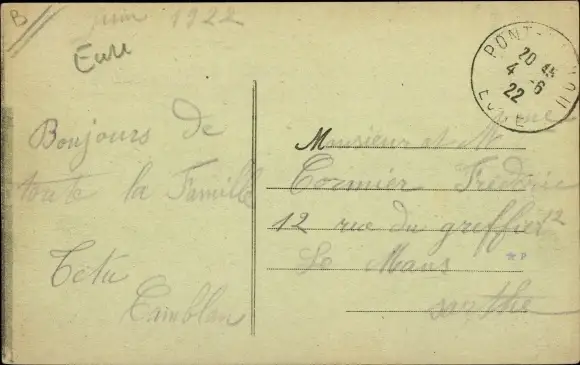 B juin 1922
Eure
PONT-
20 45
4 -6
22
EURE
Bonjours de
toute la Famille
Têtu
Tamblan
Monsieur et Mme
Cormier Frédéric
12 rue du greffier 12
Le Mans
sarthe